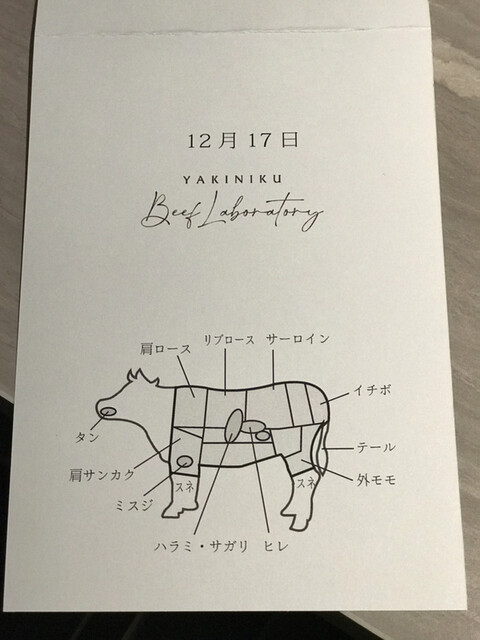 12月17日
YAKINIKU
Beef Laboratory
肩ロース
リブロース
サーロイン
イチボ
タン
テール
肩サンカク
外モモ
スネ
スネ
ミスジ
ハラミ・サガリ
ヒレ